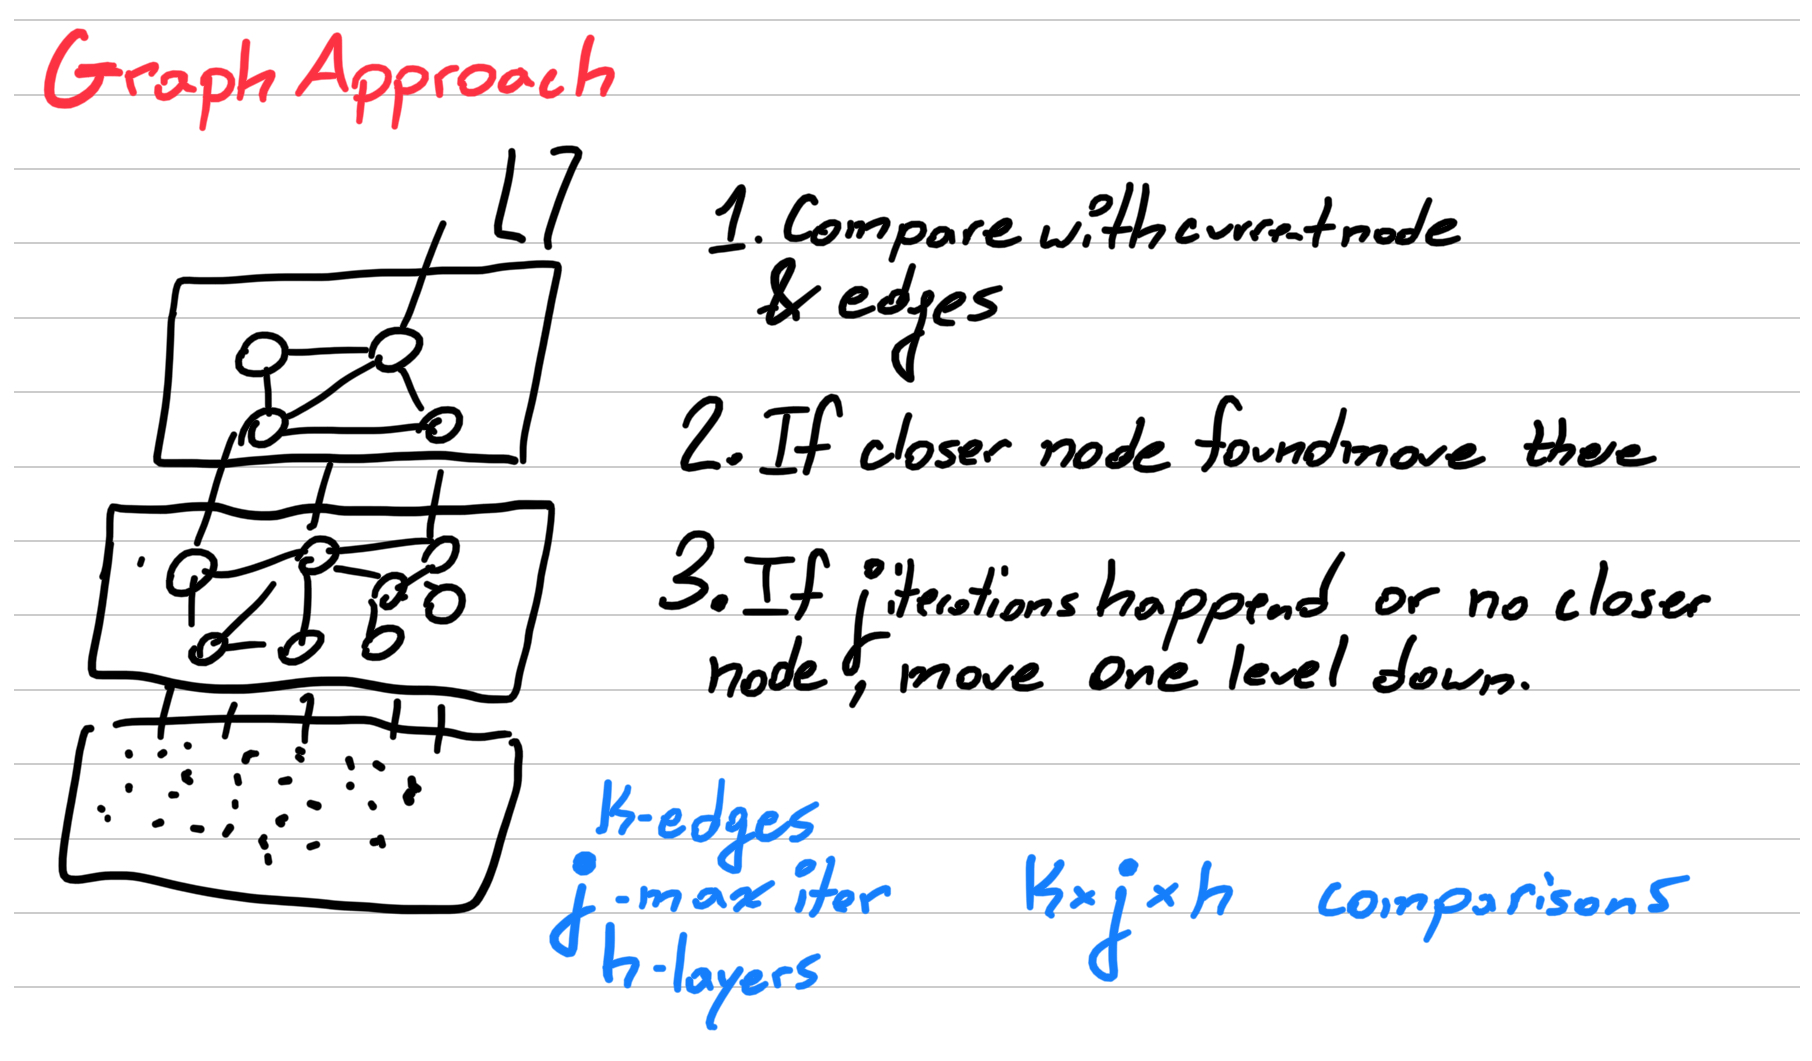 Graph Approach
1. Compare with current node
& edges
2. If closer node found move there
3. If j iterations happend or no closer
node, move one level down.
K-edges
j-max iter
h-layers
K×j×h comparisons